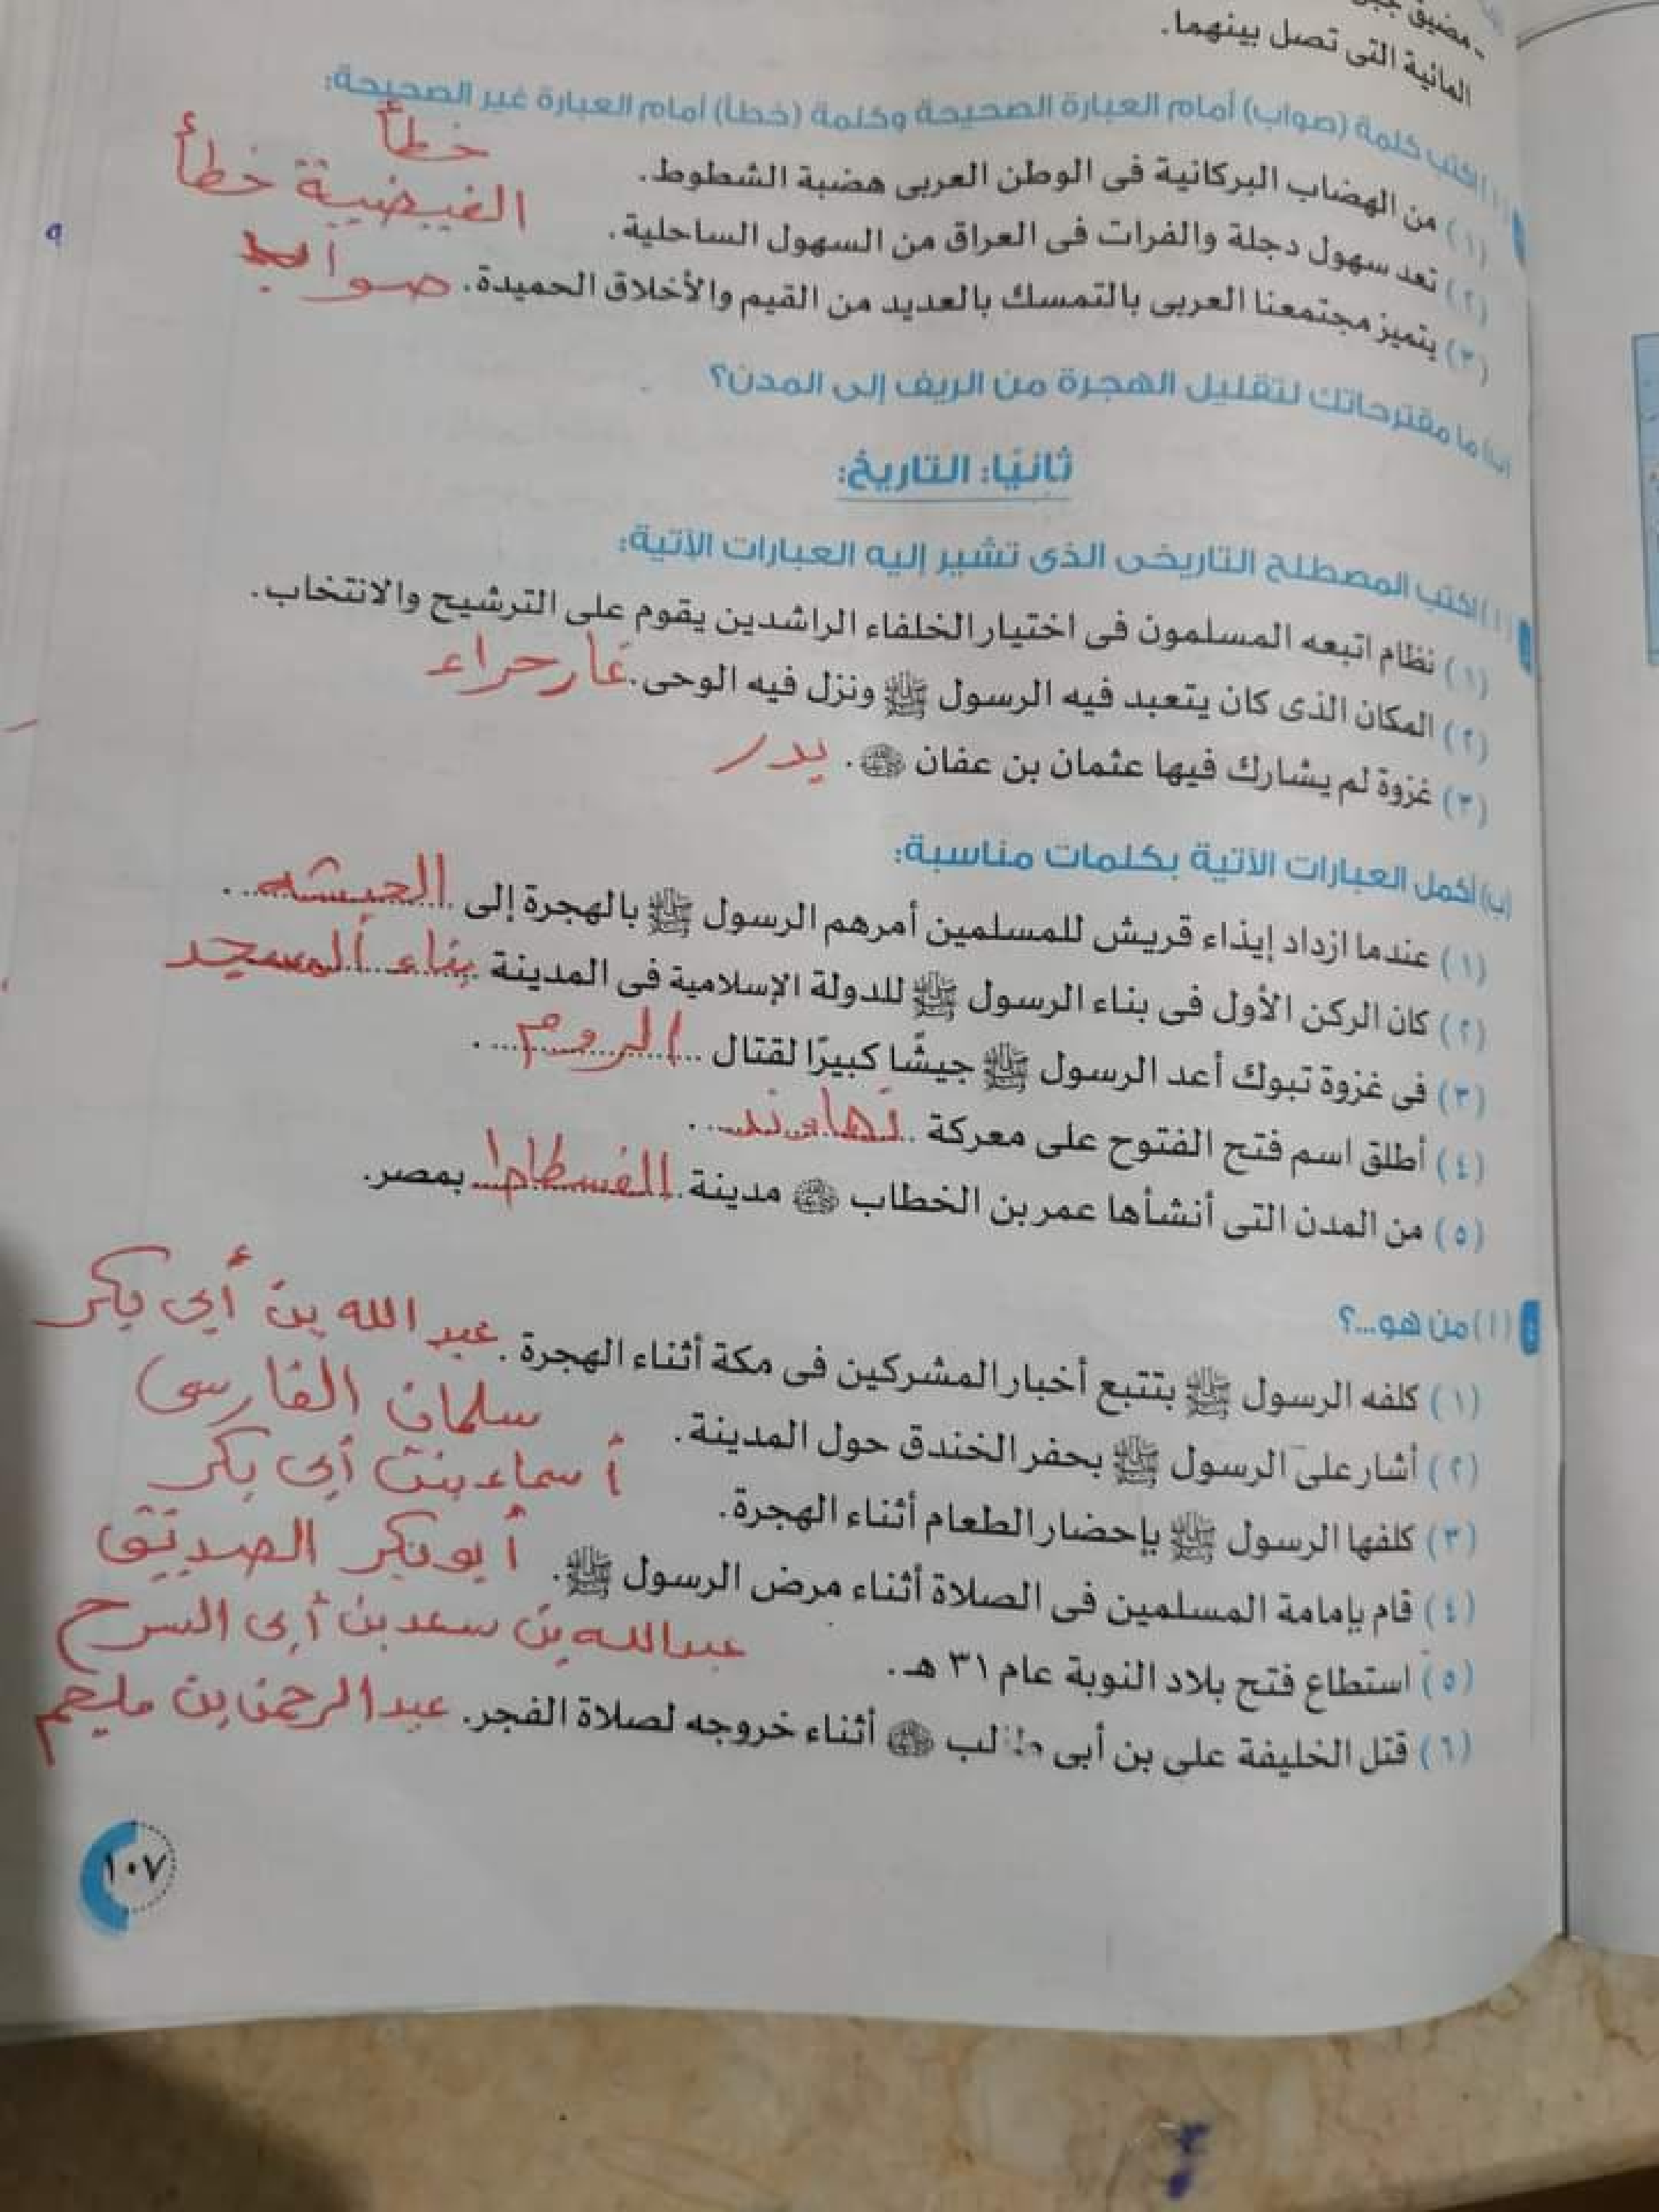 - مضيق
المائية التى تصل بينهما.
(ا) اكتب كلمة (صواب) أمام العبارة الصحيحة وكلمة (خطأ) أمام العبارة غير الصحيحة:
(١) من الهضاب البركانية فى الوطن العربى هضبة الشطوط. خطأ
(٢) تعد سهول دجلة والفرات فى العراق من السهول الساحلية. الفيضية خطأ
(٣) يتميز مجتمعنا العربى بالتمسك بالعديد من القيم والأخلاق الحميدة. صواب
(ب) ما مقترحاتك لتقليل الهجرة من الريف إلى المدن؟
ثانيًا: التاريخ:
(ا) اكتب المصطلح التاريخى الذى تشير إليه العبارات الآتية:
(١) نظام اتبعه المسلمون فى اختيار الخلفاء الراشدين يقوم على الترشيح والانتخاب.
(٢) المكان الذى كان يتعبد فيه الرسول ﷺ ونزل فيه الوحى. غار حراء
(٣) غزوة لم يشارك فيها عثمان بن عفان رضي الله عنه. بدر
(ب) أكمل العبارات الآتية بكلمات مناسبة:
(١) عندما ازداد إيذاء قريش للمسلمين أمرهم الرسول ﷺ بالهجرة إلى الحبشه.
(٢) كان الركن الأول فى بناء الرسول ﷺ للدولة الإسلامية فى المدينة بناء المسجد
(٣) فى غزوة تبوك أعد الرسول ﷺ جيشًا كبيرًا لقتال الروم.
(٤) أطلق اسم فتح الفتوح على معركة نهاوند.
(٥) من المدن التى أنشأها عمر بن الخطاب رضي الله عنه مدينة الفسطاط بمصر.
(ا) من هو...؟
(١) كلفه الرسول ﷺ بتتبع أخبار المشركين فى مكة أثناء الهجرة. عبد الله بن أبى بكر
(٢) أشار على الرسول ﷺ بحفر الخندق حول المدينة. سلمان الفارسى
(٣) كلفها الرسول ﷺ بإحضار الطعام أثناء الهجرة. أسماء بنت أبى بكر
(٤) قام بإمامة المسلمين فى الصلاة أثناء مرض الرسول ﷺ. أبو بكر الصديق
(٥) استطاع فتح بلاد النوبة عام ٣١ هـ. عبدالله بن سعد بن أبى السرح
(٦) قتل الخليفة على بن أبى طالب رضي الله عنه أثناء خروجه لصلاة الفجر. عبد الرحمن بن ملجم
١٠٧